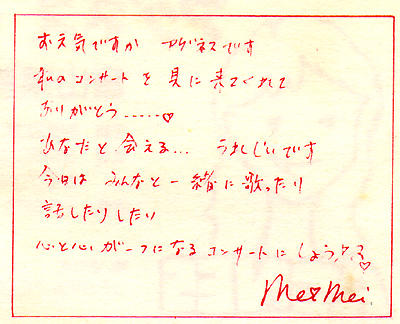 お元気ですか アグネスです
私のコンサートを見に来てくれて
ありがとう……♡
あなたと会える… うれしいです
今日は みんなと一緒に歌ったり
話したりしたい
心と心が一つになるコンサートにしようネ♡
Mei Mei